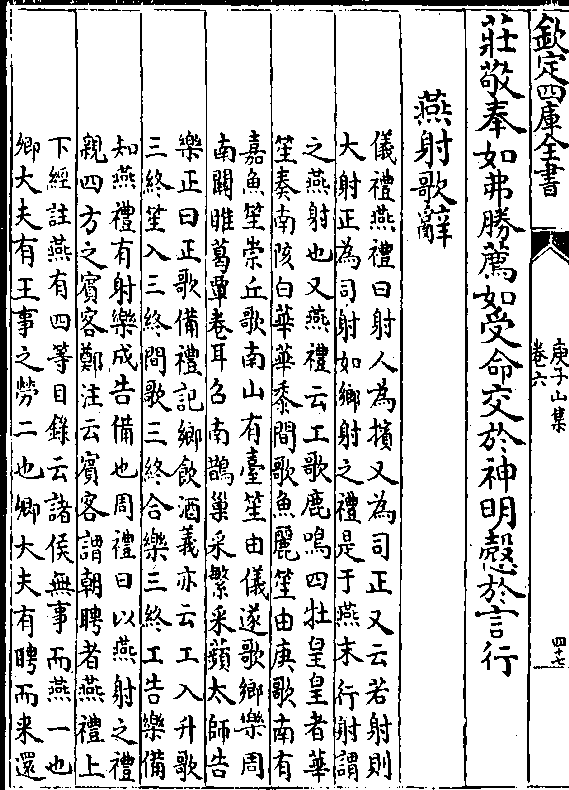 欽定四庫全書
庾子山集
卷六
四十七
莊敬奉如弗勝薦如受命交於神明慤於言行
燕射歌辭
儀禮燕禮曰射人為擯又為司正又云若射則
大射正為司射如鄉射之禮是于燕末行射謂
之燕射也又燕禮云工歌鹿鳴四牡皇皇者華
笙奏南陔白華華黍間歌魚麗笙由庚歌南有
嘉魚笙崇丘歌南山有臺笙由儀遂歌鄉樂周
南關雎葛覃卷耳召南鵲巢采蘩采蘋太師告
樂正曰正歌備禮記鄉飲酒義亦云工入升歌
三終笙入三終間歌三終合樂三終工告樂備
知燕禮有射樂成告備也周禮曰以燕射之禮
親四方之賓客鄭注云賓客謂朝聘者燕禮上
下經註燕有四等目錄云諸侯無事而燕一也
卿大夫有王事之勞二也卿大夫有聘而来還